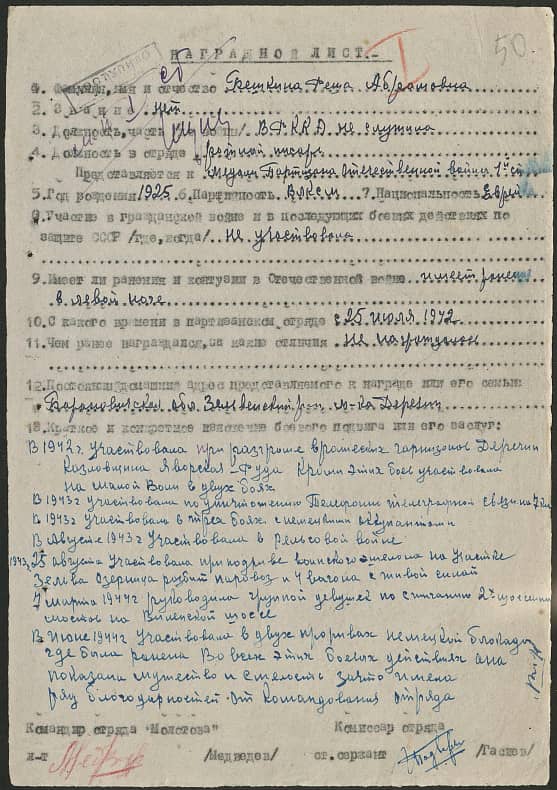 50.
НАГРАДНОЙ ЛИСТ.
1. Фамилия, имя и отчество Бешкина Абрамовна
2. Звание Нет
3. Должность, часть В РККА не служила
4. Должность в отряде рядной писарь
Представляется к Медали Партизана Отечественной войны 1й ст.
5. Год рождения 1925 6. Партийность ВЛКСМ 7. Национальность Еврей
8. Участие в гражданской войне и в последующих боевых действиях по
защите СССР /где, когда/ Не участвовала
9. Имеет ли ранения и контузии в Отечественной войне имеет ранение
в левой ноге
10. С какого времени в партизанском отряде с 25 июля 1942
11. Чем ранее награждался, за какие отличия не награждена
12. Постоянный домашний адрес представляемого к награде или его семьи:
Барановичская обл. м-ко Деречин
13. Краткое и конкретное изложение боевого подвига или его заслуг:
В 1942 г. участвовала при разгроме вражеских гарнизонов Деречин
Козловщина Яворская-Руда Кроме этих боев участвовала
на Малой Воли в двух боях
В 1943 г участвовала по уничтожению телеграфной связи
В 1943 г участвовала в трех боях с немецкими оккупантами
В Августе 1943 г Участвовала в Рельсовой войне
1943 25 августа участвовала при подрыве воинского эшелона на участке
Зельва Озерница разбит паровоз и 4 вагона с живой силой
7 марта 1944 г руководила группой девушек по сжиганию 2х шоссейных
мостов на Виленской шоссе
В Июне 1944 г участвовала в двух прорывах немецкой блокады
где была ранена Во всех этих боевых действиях она
показала мужество и смелость за что имела
ряд благодарностей от командования отряда
Командир отряда "Молотова" Комиссар отряда
л-т /Медведев/ ст. сержант /Гасиев/